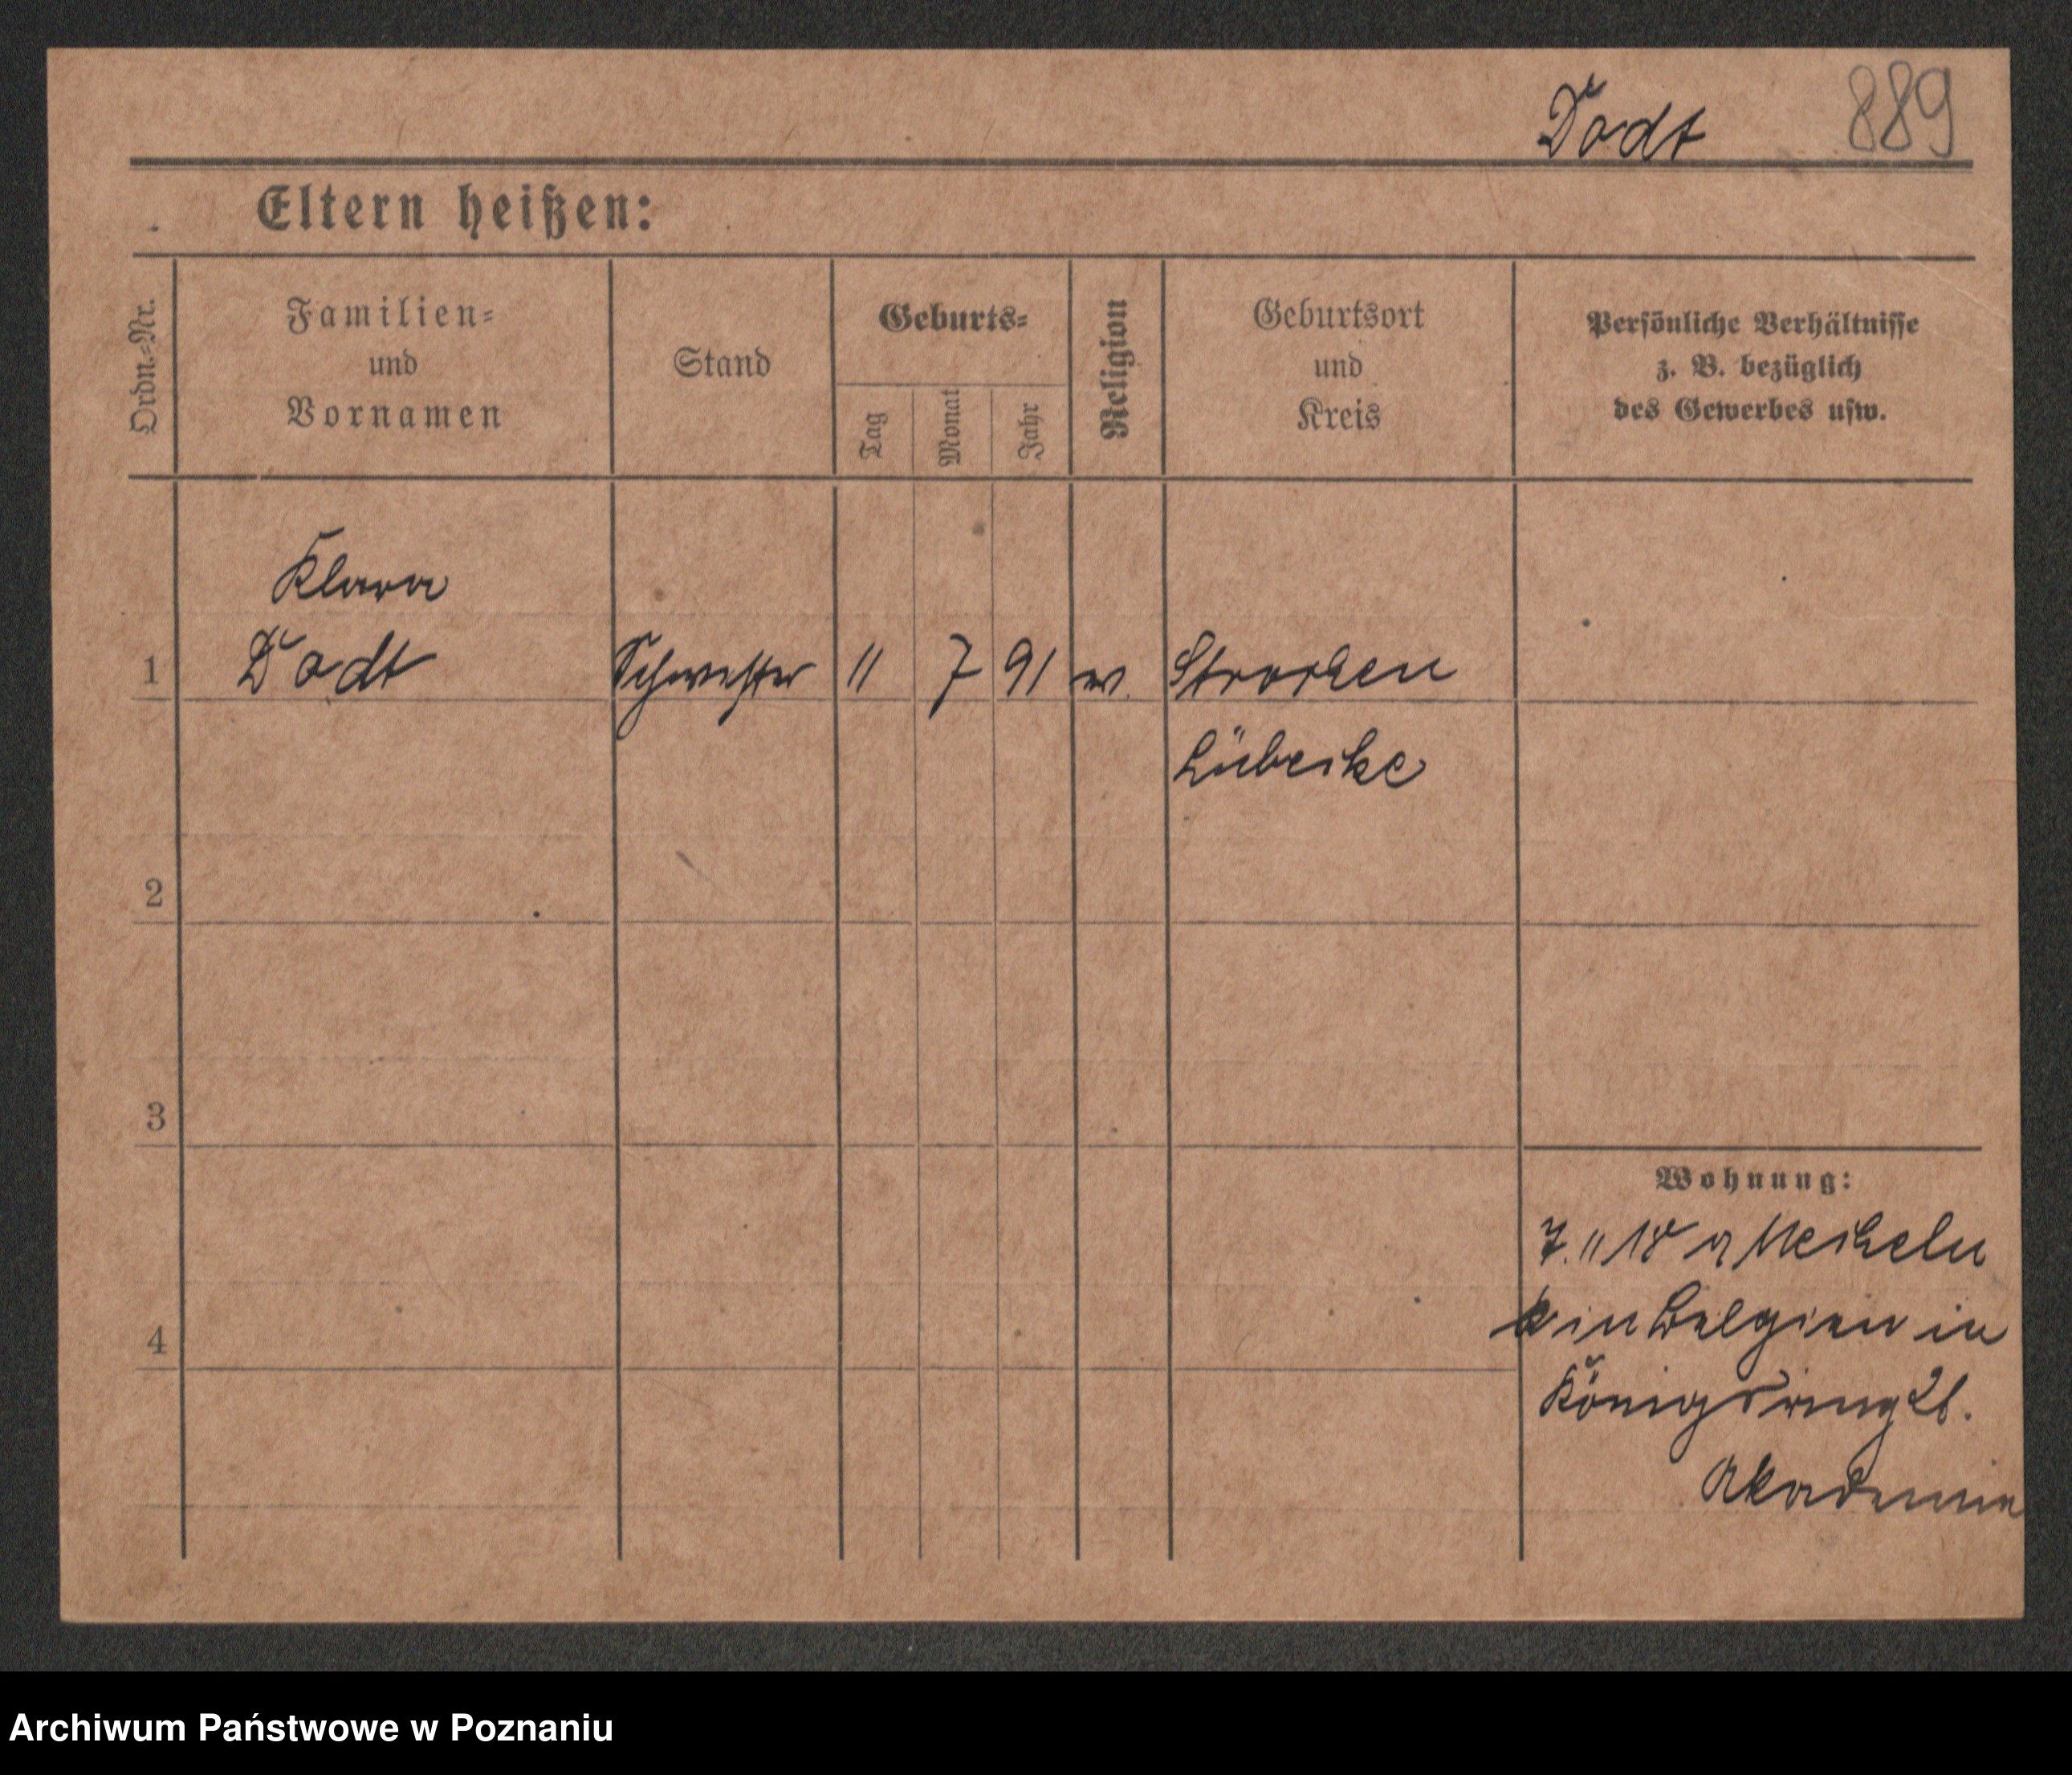 Dodt 889
Eltern heißen:
Ordn.=Nr.
Familien=
und
Vornamen
Stand
Geburts=
Tag
Monat
Jahr
Religion
Geburtsort
und
Kreis
Persönliche Verhältnisse
z. B. bezüglich
des Gewerbes usw.
Klara
1 Dodt Schwester 11 7 91 ev.
Lübecke
2
3
Wohnung:
7. 11 18 Mecheln
in Belgien in
4
Königsring
Akademie
Archiwum Państwowe w Poznaniu